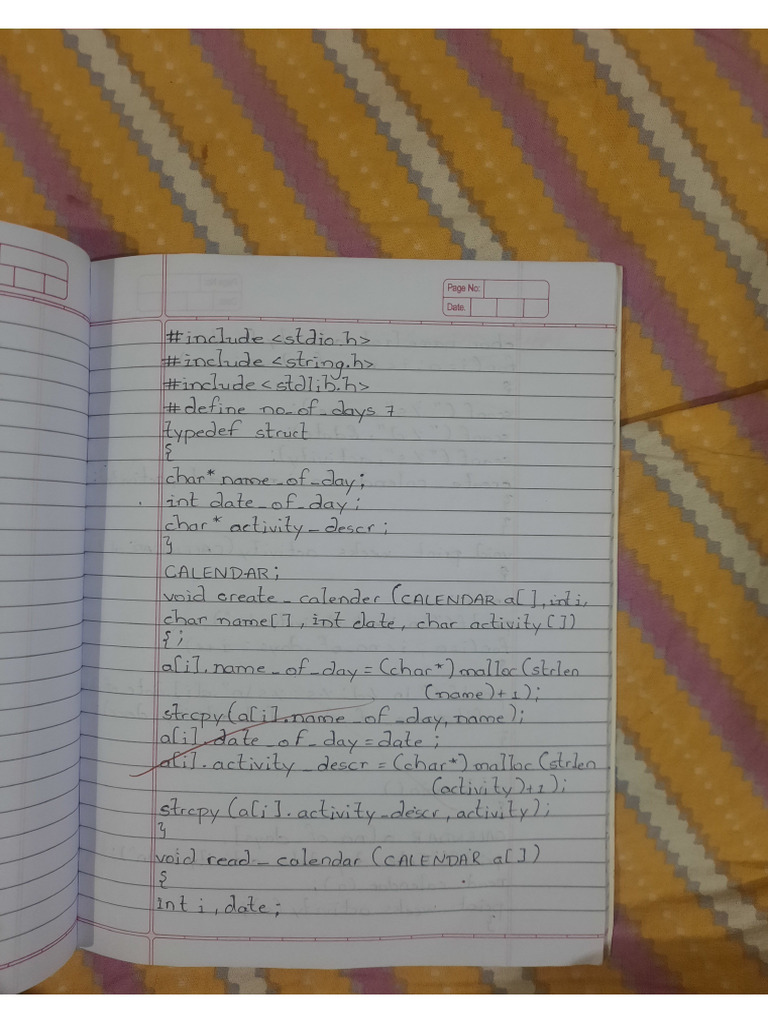 Page No:
Date.
#include <stdio.h>
#include <string.h>
#include <stdlib.h>
#define no_of_days 7
typedef struct
{
char* name_of_day;
int date_of_day;
char* activity_descr;
}
CALENDAR;
void create_calender (CALENDAR a[], int i,
char name[], int date, char activity[])
{;
a[i].name_of_day = (char*) malloc(strlen
(name)+1);
strcpy(a[i].name_of_day, name);
a[i].date_of_day = date;
a[i].activity_descr = (char*) malloc(strlen
(activity)+1);
strcpy (a[i].activity_descr, activity);
}
void read_calendar (CALENDAR a[])
{
int i, date;